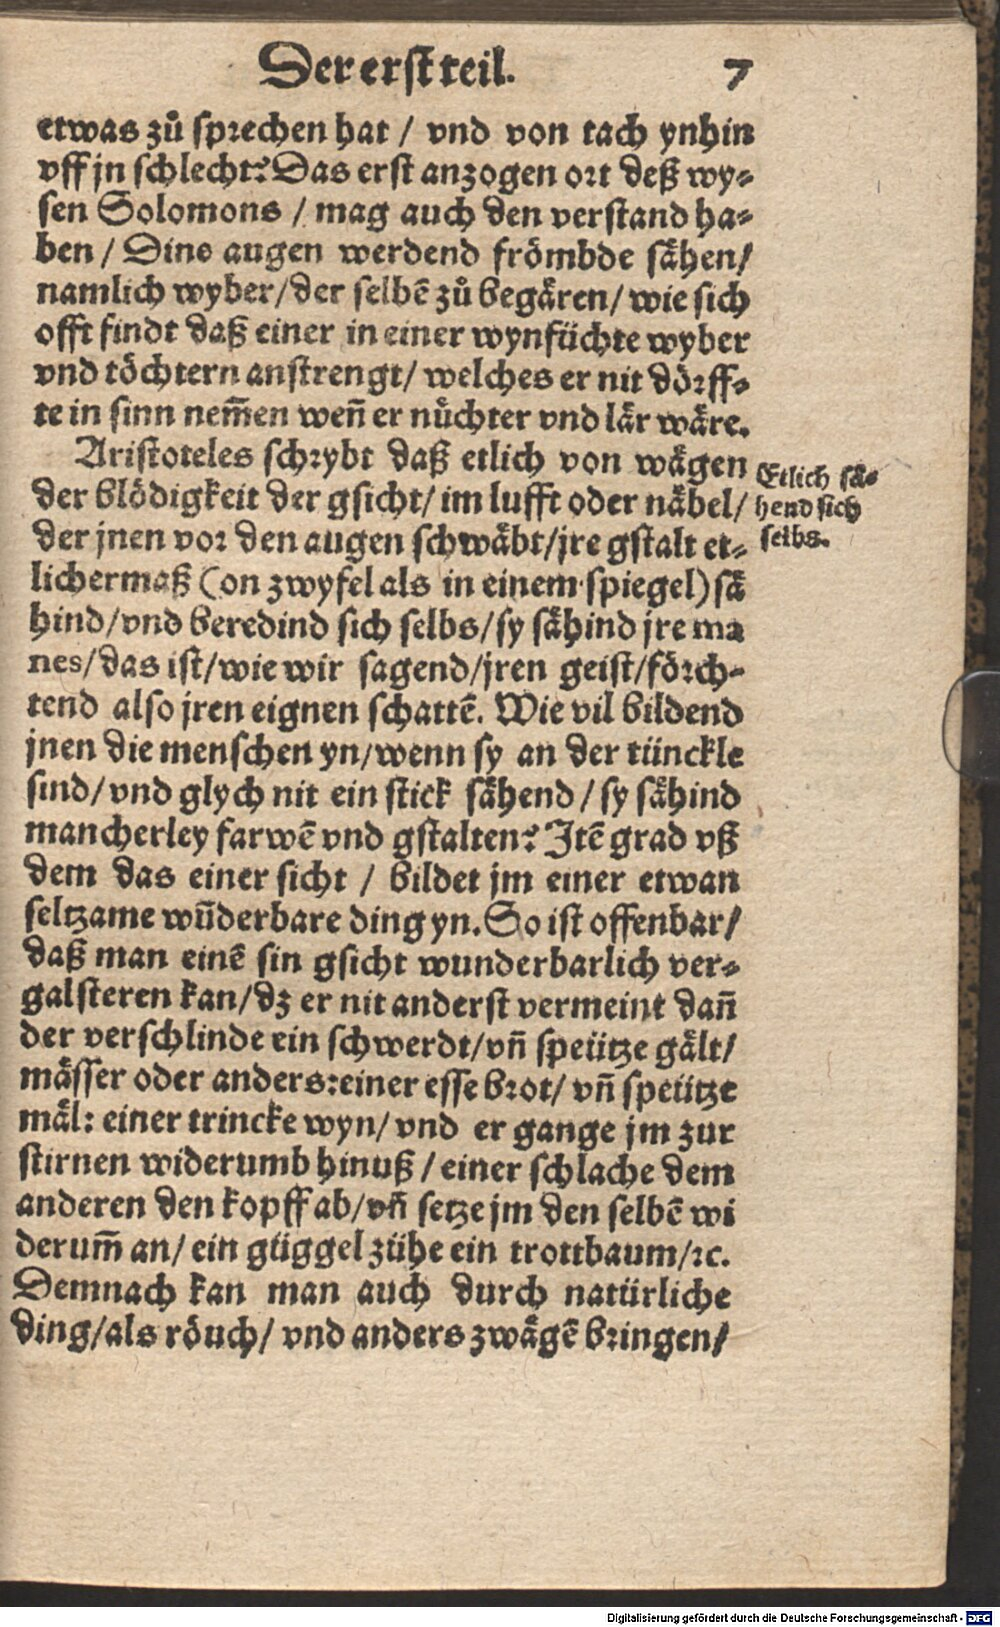 Der erst teil. 7
etwas zů sprechen hat / vnd von tach ynhin
vff jn schlecht? Das erst anzogen ort deß wy-
sen Solomons / mag auch den verstand ha-
ben / Dine augen werdend frömbde sähen /
namlich wyber / der selbē zů begären / wie sich
offt findt daß einer in einer wynfüchte wyber
vnd töchtern anstrengt / welches er nit dörff-
te in sinn nem̄en wen̄ er nüchter vnd lär wäre.
Aristoteles schrybt daß etlich von wägen
der blödigkeit der gsicht / im lufft oder näbel /
der jnen vor den augen schwäbt / jre gstalt et-
lichermaß (on zwyfel als in einem spiegel) sä
hind / vnd beredind sich selbs / sy sähind jre ma
nes / das ist / wie wir sagend / jren geist / förch-
tend also jren eignen schattē. Wie vil bildend
jnen die menschen yn / wenn sy an der tünckle
sind / vnd glych nit ein stick sähend / sy sähind
mancherley farwē vnd gstalten? Jtē grad vß
dem das einer sicht / bildet jm einer etwan
seltzame wūderbare ding yn. So ist offenbar /
daß man einē sin gsicht wunderbarlich ver-
galsteren kan / dz er nit anderst vermeint dan̄
der verschlinde ein schwerdt / vn̄ speütze gält /
mässer oder anders: einer esse brot / vn̄ speütze
mäl: einer trincke wyn / vnd er gange jm zur
stirnen widerumb hinuß / einer schlache dem
anderen den kopff ab / vn̄ setze jm den selbē wi
derum̄ an / ein güggel zühe ein trottbaum / ꝛc.
Demnach kan man auch durch natürliche
ding / als röuch / vnd anders zwägē bringen /
Etlich sä-
hend sich
selbs.
Digitalisierung gefördert durch die Deutsche Forschungsgemeinschaft - DFG